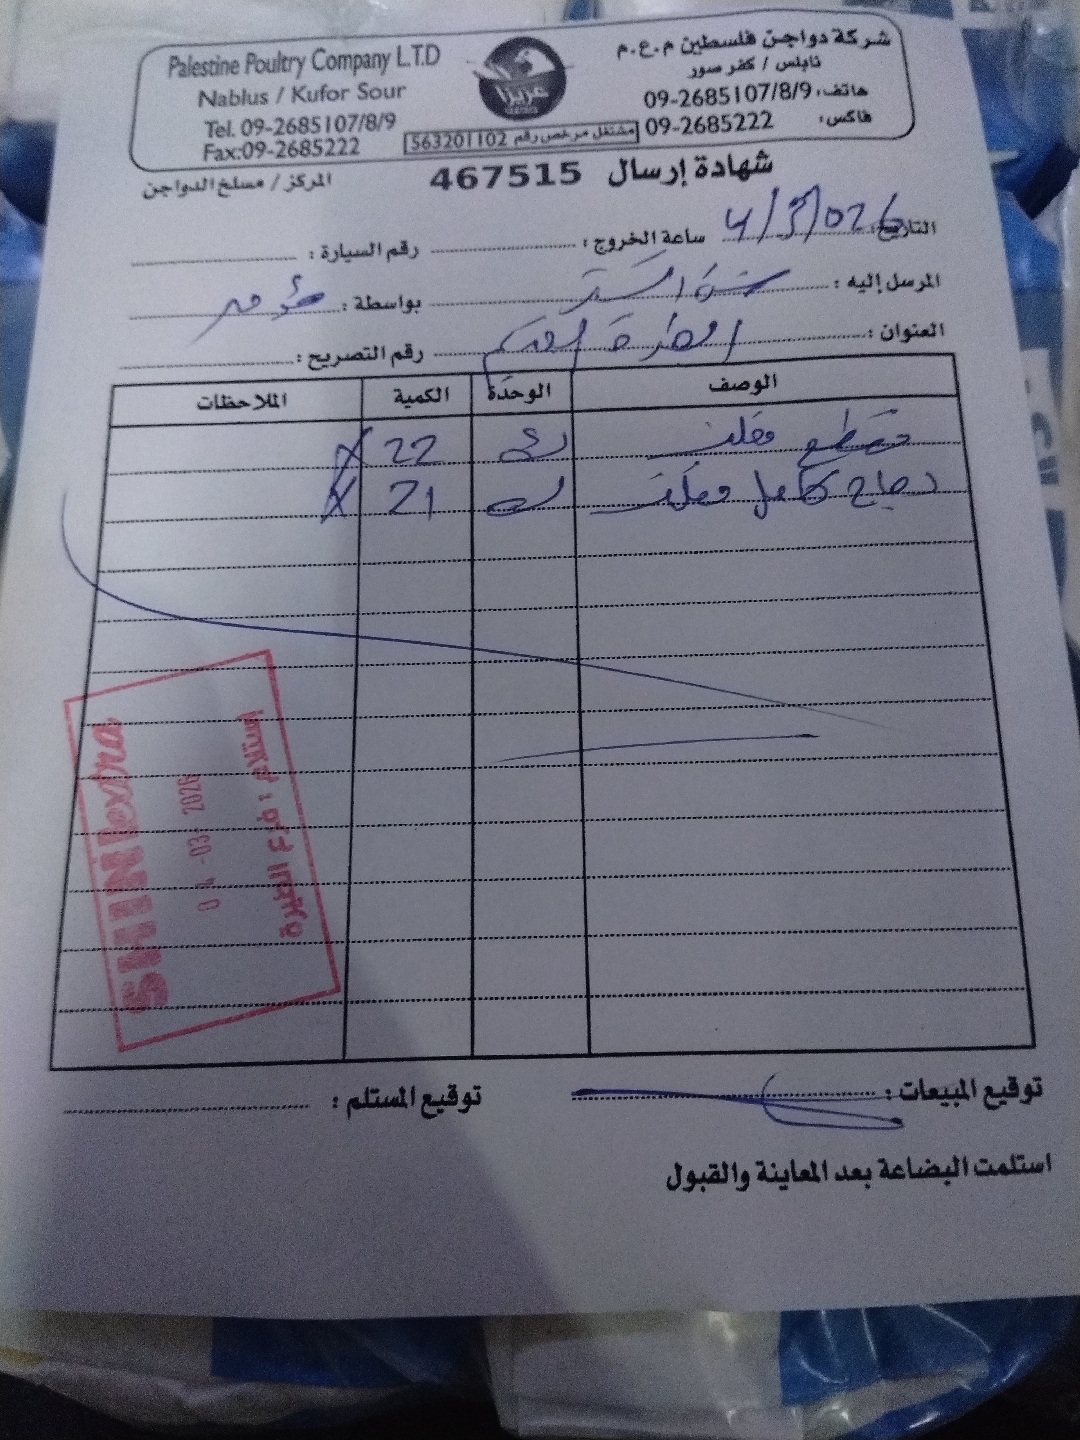 Palestine Poultry Company L.T.D
Nablus / Kufor Sour
Tel. 09-2685107/8/9
Fax:09-2685222
عزيزا
مشتغل مرخص رقم 563201102
شركة دواجن فلسطين م.ع.م
نابلس / كفر صور
هاتف: 09-2685107/8/9
فاكس: 09-2685222
شهادة إرسال 467515
المركز / مسلخ الدواجن
التاريخ: 4/3/026 ساعة الخروج: رقم السيارة:
المرسل إليه: بواسطة:
العنوان: رقم التصريح:
الوصف الوحدة الكمية الملاحظات
مقطع مغلف 22
دجاج كامل مغلف 21
SHINI extra
04-03-2026
استلام: فرع الطيرة
توقيع المبيعات: توقيع المستلم:
استلمت البضاعة بعد المعاينة والقبول